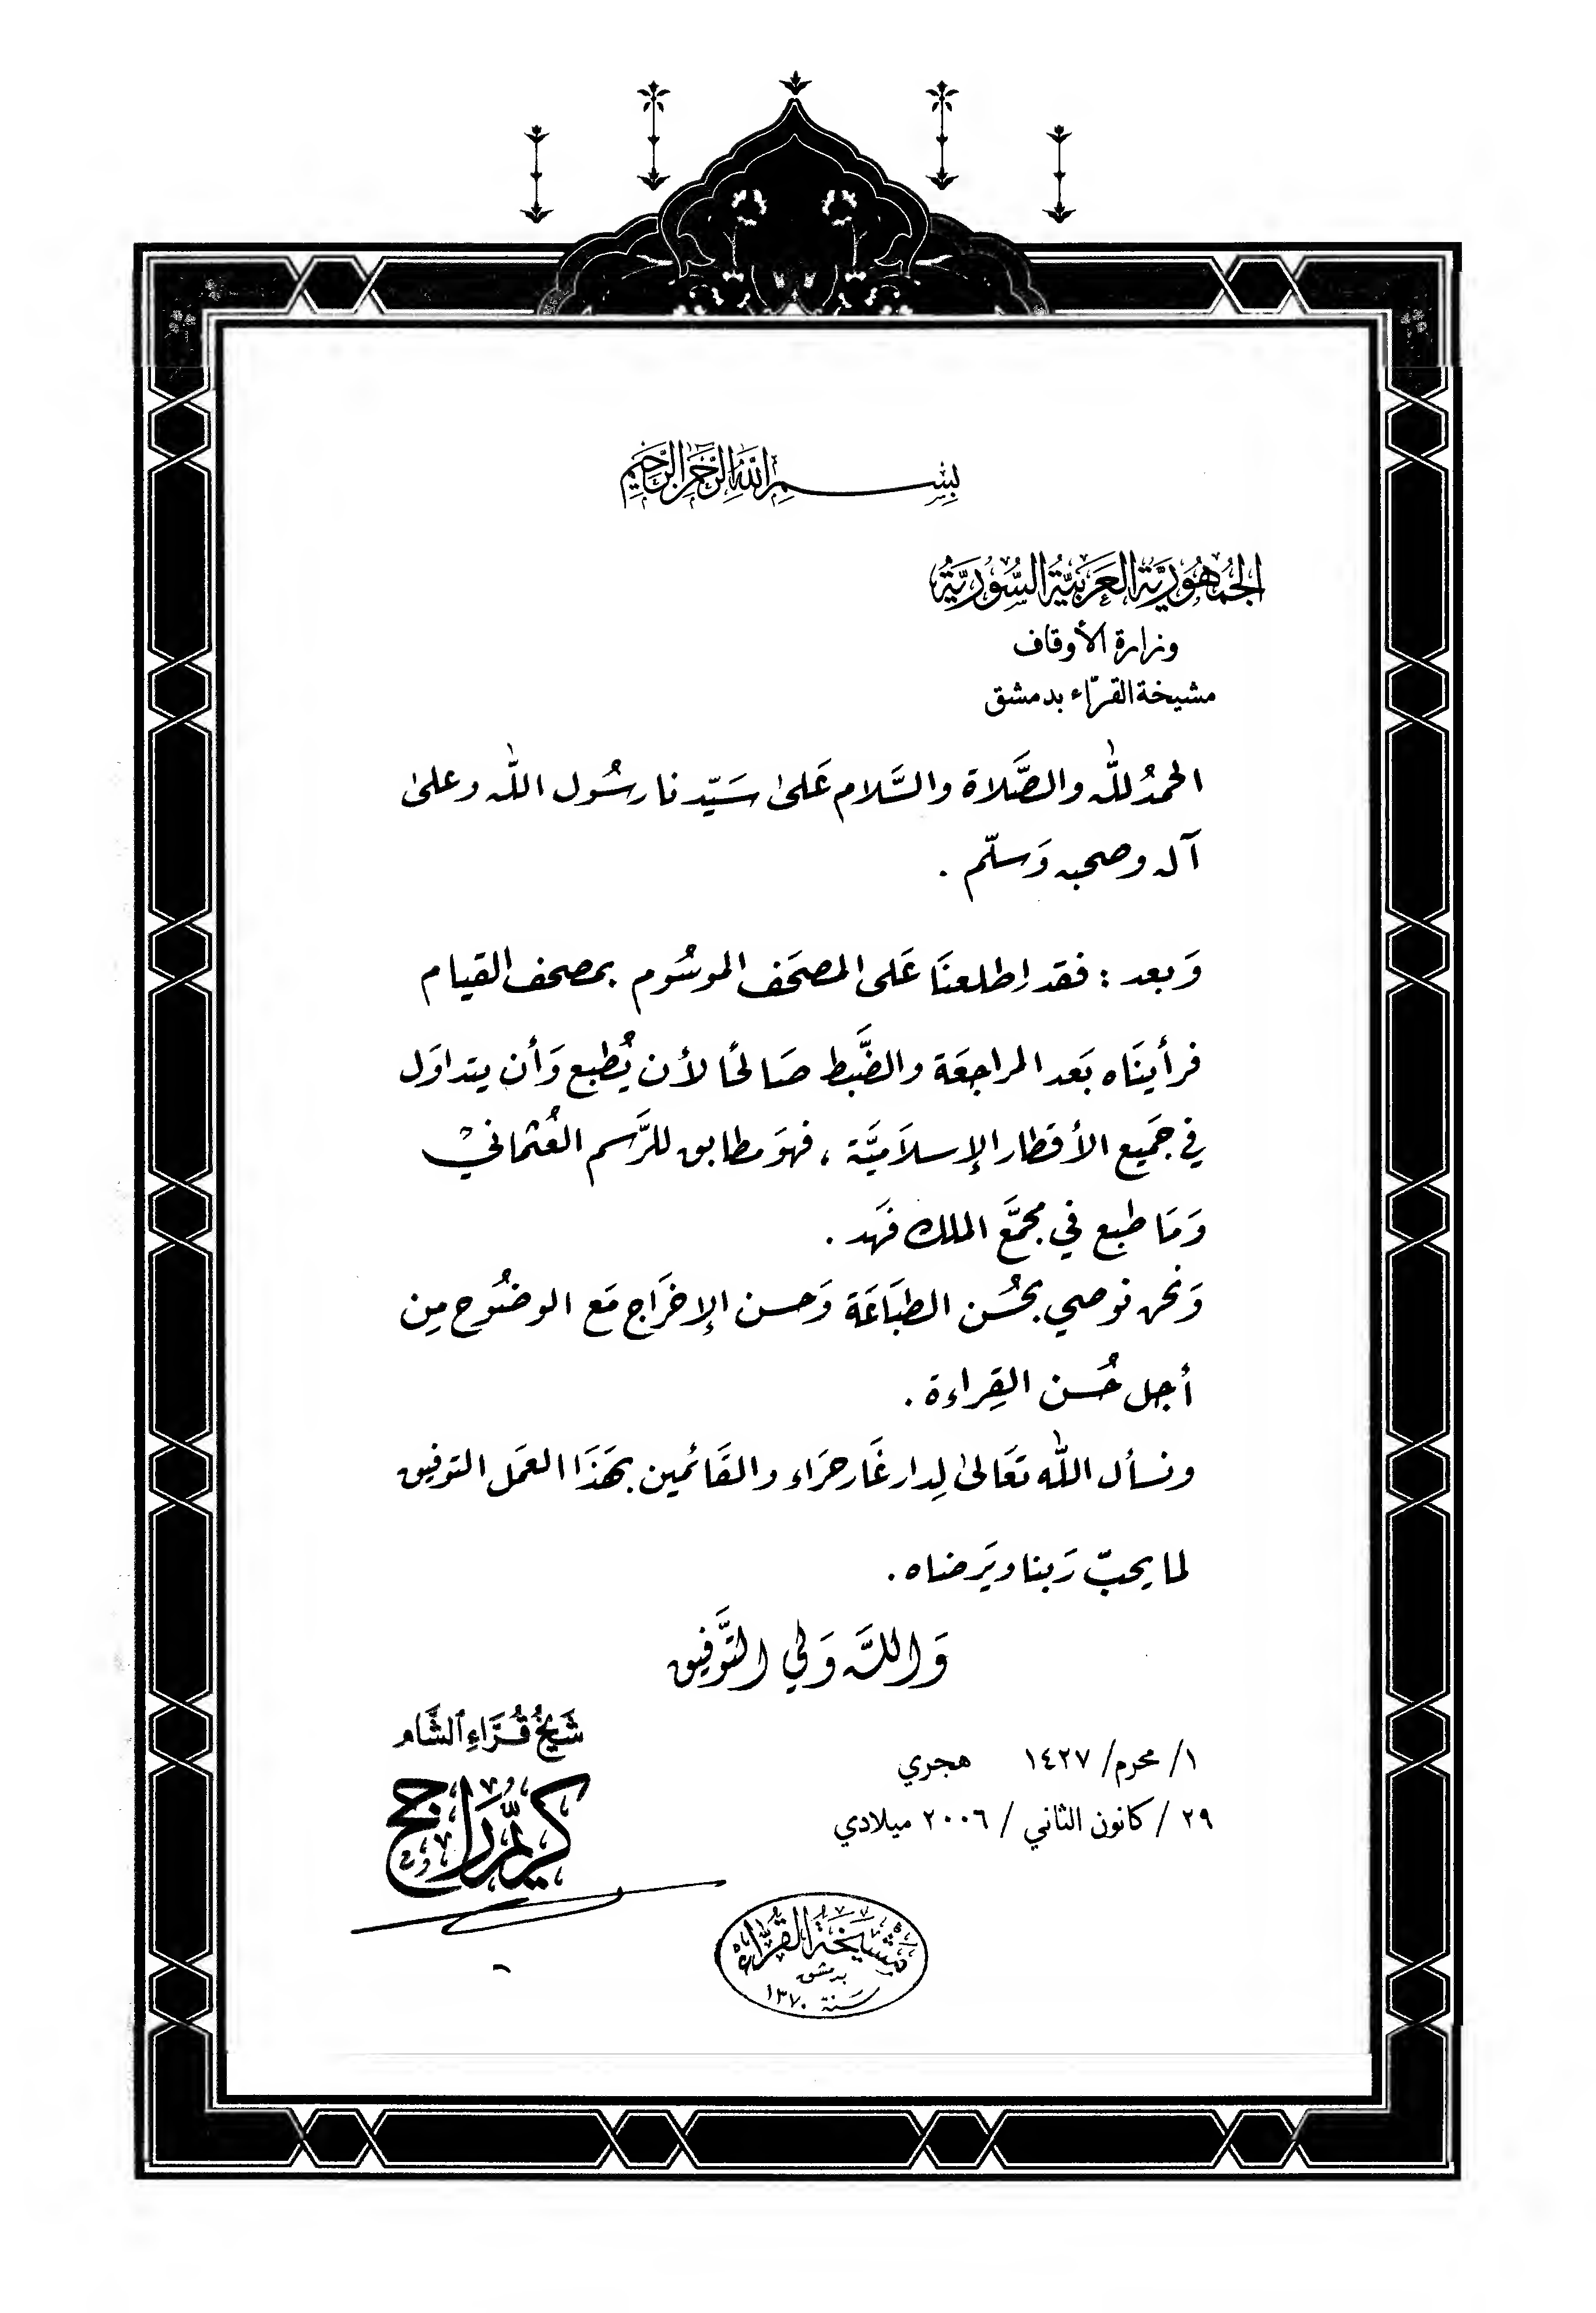 بِسْمِ اللَّهِ الرَّحْمَٰنِ الرَّحِيمِ
الجُمْهُورِيَّة العَرَبِيَّة السُّورِيَّةُ
وزارة الأوقاف
مشيخة القرّاء بدمشق
الحمدُ للّٰه والصَّلاة والسَّلام عَلىٰ سَيّدنا رسُول اللّٰه وعلىٰ
آله وصحبه وَسلّم .
وَبعد : فقد اِطلعنَا عَلى المصحَف الموسُوم بمصحف القيام
فرأينَاه بَعد المراجعَة والضَّبط صَالحًا لأن يُطبع وَأن يتداوَل
في جَميع الأقطار الإسلاَميَّة ، فهوَ مطابق للرَّسم العُثماني
وَمَا طبع في مجمَّع الملك فَهد .
وَنحن نوصي بحُسن الطبَاعَة وَحسن الإخرَاج مَع الوضُوح مِن
أجل حُسن القِراءة .
ونسأل اللّٰه تعَالىٰ لِدار غَار حرَاء والقَائمين بهَذَا العمَل التوفيق
لما يحبّ رَبنا ويَرضاه .
وَاللَّه وَلي التَّوفيق
شَيْخُ قُرَّاءِ الشَّام
كريّم راجح
١/ محرم/ ١٤٢٧ هجري
٢٩ / كانون الثاني / ٢٠٠٦ ميلادي
مَشيَخَةُ القُرَّاء
بدمشق
سَنة ١٣٧٠